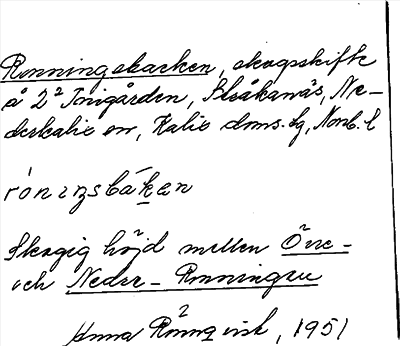 Rønningsbacken, skogsskifte
å 2² Jonigården, Blåkanäs, Ne-
derkalix sn, Kalix doms. lg, Norrb. l
róninzsbákan
Skogig höjd mellan Övre-
och Nedre-Ronningen
Anna Rönnqvist, 1951